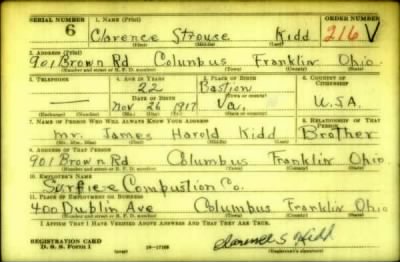 SERIAL NUMBER 1. NAME (Print) ORDER NUMBER
6 Clarence Strouse Kidd 216 V
(First) (Middle) (Last)
2. ADDRESS (Print)
901 Brown Rd Columbus Franklin Ohio
(Number and street or R. F. D. number) (Town) (County) (State)
3. TELEPHONE 4. AGE IN YEARS 5. PLACE OF BIRTH 6. COUNTRY OF CITIZENSHIP
22 Bastion
DATE OF BIRTH (Town or county)
Nov 26 1917 Va. U.S.A.
(Exchange) (Number) (Mo.) (Day) (Yr.) (State or country)
7. NAME OF PERSON WHO WILL ALWAYS KNOW YOUR ADDRESS 8. RELATIONSHIP OF THAT PERSON
Mr. James Harold Kidd Brother
(Mr., Mrs., Miss) (First) (Middle) (Last)
9. ADDRESS OF THAT PERSON
901 Brown Rd Columbus Franklin Ohio
(Number and street or R. F. D. number) (Town) (County) (State)
10. EMPLOYER'S NAME
Surfice Compustion Co.
11. PLACE OF EMPLOYMENT OR BUSINESS
400 Dublin Ave Columbus Franklin Ohio
(Number and street or R. F. D. number) (Town) (County) (State)
I AFFIRM THAT I HAVE VERIFIED ABOVE ANSWERS AND THAT THEY ARE TRUE.
REGISTRATION CARD
D. S. S. Form 1 16-17105 Clarence S Kidd
(Registrant's signature)